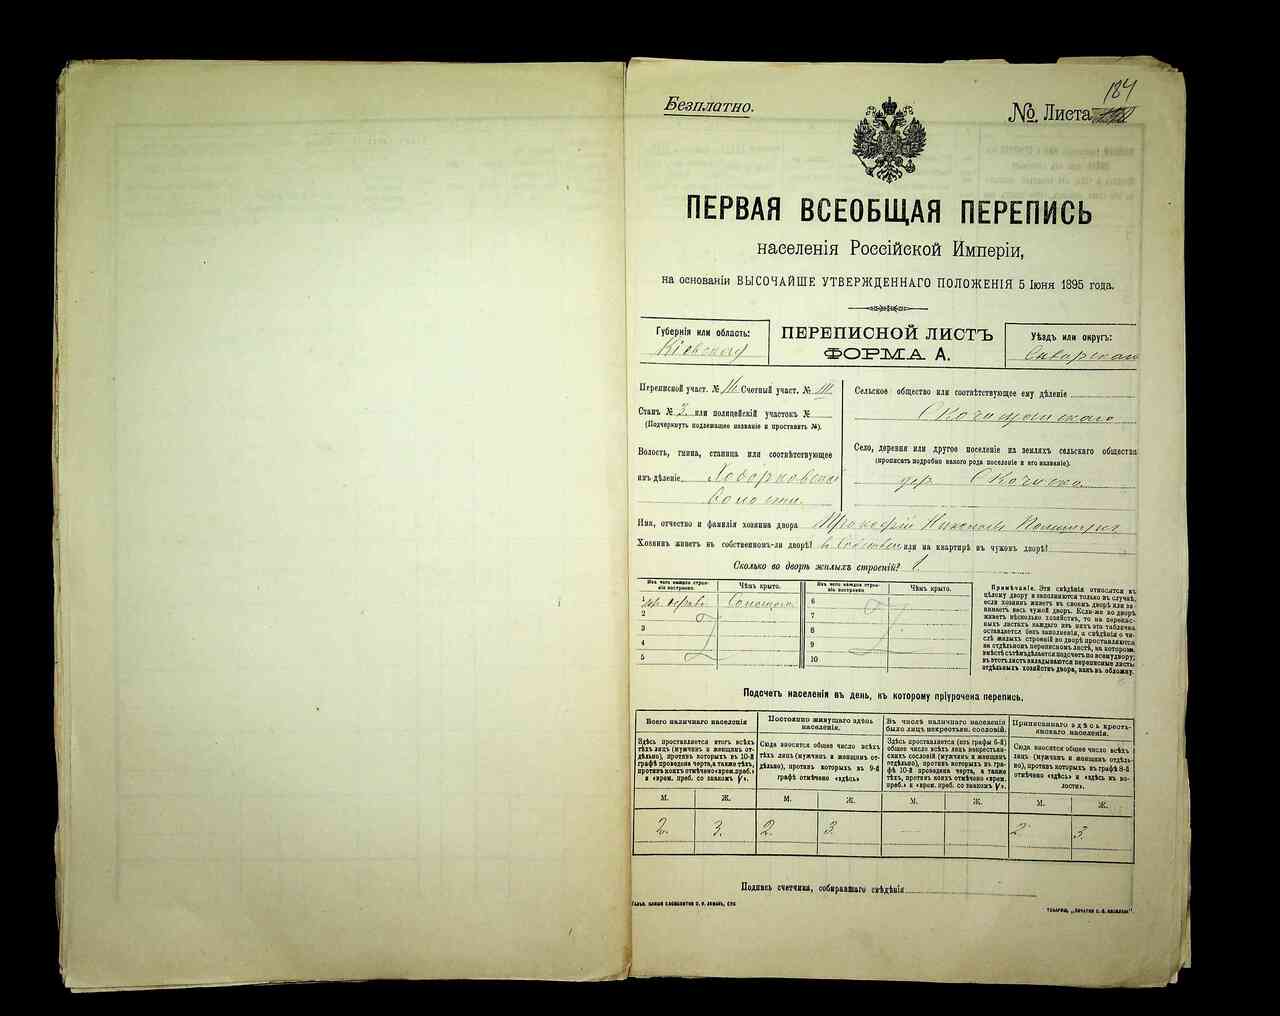 Безплатно.
184
№ Листа
ПЕРВАЯ ВСЕОБЩАЯ ПЕРЕПИСЬ
населенія Россійской Имперіи,
на основаніи ВЫСОЧАЙШЕ УТВЕРЖДЕННАГО ПОЛОЖЕНІЯ 5 Іюня 1895 года.
Губернія или область:
Кіевская
ПЕРЕПИСНОЙ ЛИСТЪ
ФОРМА А.
Уѣздъ или округъ:
Сквирскій
Переписной участ. № Счетный участ. № III
Станъ № 2. или полицейскій участокъ №
(Подчеркнуть подлежащее названіе и проставить №).
Волость, гмина, станица или соотвѣтствующее
имъ дѣленіе. Ходорковская
волости.
Сельское общество или соотвѣтствующее ему дѣленіе
Скочищенскаго
Село, деревня или другое поселеніе на земляхъ сельскаго общества
(прописать подробно какого рода поселеніе и его названіе).
дер. Скочиска
Имя, отчество и фамилія хозяина двора Прокофій Николаевъ
Хозяинъ живетъ въ собственномъ-ли дворѣ? въ собствен или на квартирѣ въ чужомъ дворѣ?
Сколько во дворѣ жилыхъ строеній? 1.
Изъ чего каждое строеніе построено.
Чѣмъ крыто.
Изъ чего каждое строеніе построено.
Чѣмъ крыто.
1 Соломою
2
3
4
5
6
7
8
9
10
Примѣчаніе. Эти свѣдѣнія относятся къ
цѣлому двору и заполняются только въ случаѣ,
если хозяинъ живетъ въ своемъ дворѣ или занимаетъ
весь чужой дворъ. Если-же во дворѣ
живетъ нѣсколько хозяйствъ, то на переписныхъ
листахъ каждаго изъ нихъ эта табличка
оставляется безъ заполненія, а свѣдѣнія о числѣ
жилыхъ строеній во дворѣ проставляются
на отдѣльномъ переписномъ листѣ, на которомъ
вмѣстѣ съ тѣмъ дѣлается подсчетъ по всему двору;
въ этотъ листъ вкладываются переписные листы
отдѣльныхъ хозяйствъ двора, какъ въ обложку.
Подсчетъ населенія въ день, къ которому пріурочена перепись.
Всего наличнаго населенія
Здѣсь проставляется итогъ всѣхъ
тѣхъ лицъ (мужчинъ и женщинъ отдѣльно),
противъ которыхъ въ 10-й
графѣ проведена черта, а также тѣхъ,
противъ коихъ отмѣчено «врем. преб.»
и «врем. преб. со знакомъ V».
Постоянно живущаго здѣсь населенія.
Сюда вносится общее число всѣхъ
тѣхъ лицъ (мужчинъ и женщинъ отдѣльно),
противъ которыхъ въ 9-й
графѣ отмѣчено «здѣсь»
Въ числѣ наличнаго населенія
было лицъ некрестьян. сословій.
Здѣсь проставляется (изъ графы 6-й)
общее число всѣхъ лицъ некрестьянскихъ
сословій (мужчинъ и женщинъ
отдѣльно), противъ которыхъ въ графѣ
10-й проведена черта, а также
тѣхъ, противъ коихъ отмѣчено «врем.
преб.» и «врем. преб. со знакомъ V».
Приписаннаго здѣсь крестьянскаго населенія.
Сюда вносится общее число всѣхъ
лицъ (мужчинъ и женщинъ отдѣльно),
противъ которыхъ въ графѣ 8-й
отмѣчено «здѣсь» и «здѣсь въ волости».
М. Ж. М. Ж. М. Ж. М. Ж.
2. 3. 2. 3. — — 2 3.
Подпись счетчика, собиравшаго свѣдѣнія